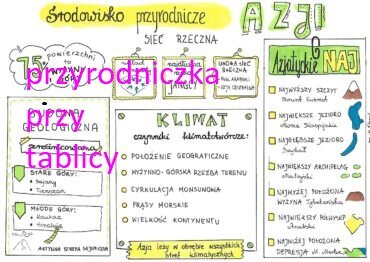 Środowisko przyrodnicze AZJI
SIEĆ RZECZNA
75% powierzchni to
przyrodniczka
przy
tablicy
GEOLOGICZNA
zróżnicowana
STARE GÓRY:
MŁODE GÓRY:
Kaukaz
Himalaje
AKTYWNA STREFA SEJSMICZNA
UBOGA SIEĆ
RZECZNA
KLIMAT
czynniki klimatotwórcze:
POŁOŻENIE GEOGRAFICZNE
WYŻYNNO-GÓRSKA RZEŹBA TERENU
CYRKULACJA MONSUNOWA
PRĄDY MORSKIE
WIELKOŚĆ KONTYNENTU
Azja leży w obrębie wszystkich
stref klimatycznych
Azjatyckie NAJ
NAJWYŻSZY SZCZYT
Mount Everest
NAJWIĘKSZE JEZIORO
Morze Kaspijskie
NAJGŁĘBSZE JEZIORO
Bajkał
NAJWIĘKSZY ARCHIPELAG
Malajski
NAJWYŻEJ POŁOŻONA
WYŻYNA Tybetańska
NAJWIĘKSZY PÓŁWYSEP
Arabski
NAJNIŻEJ POŁOŻONA
DEPRESJA M. Martwe